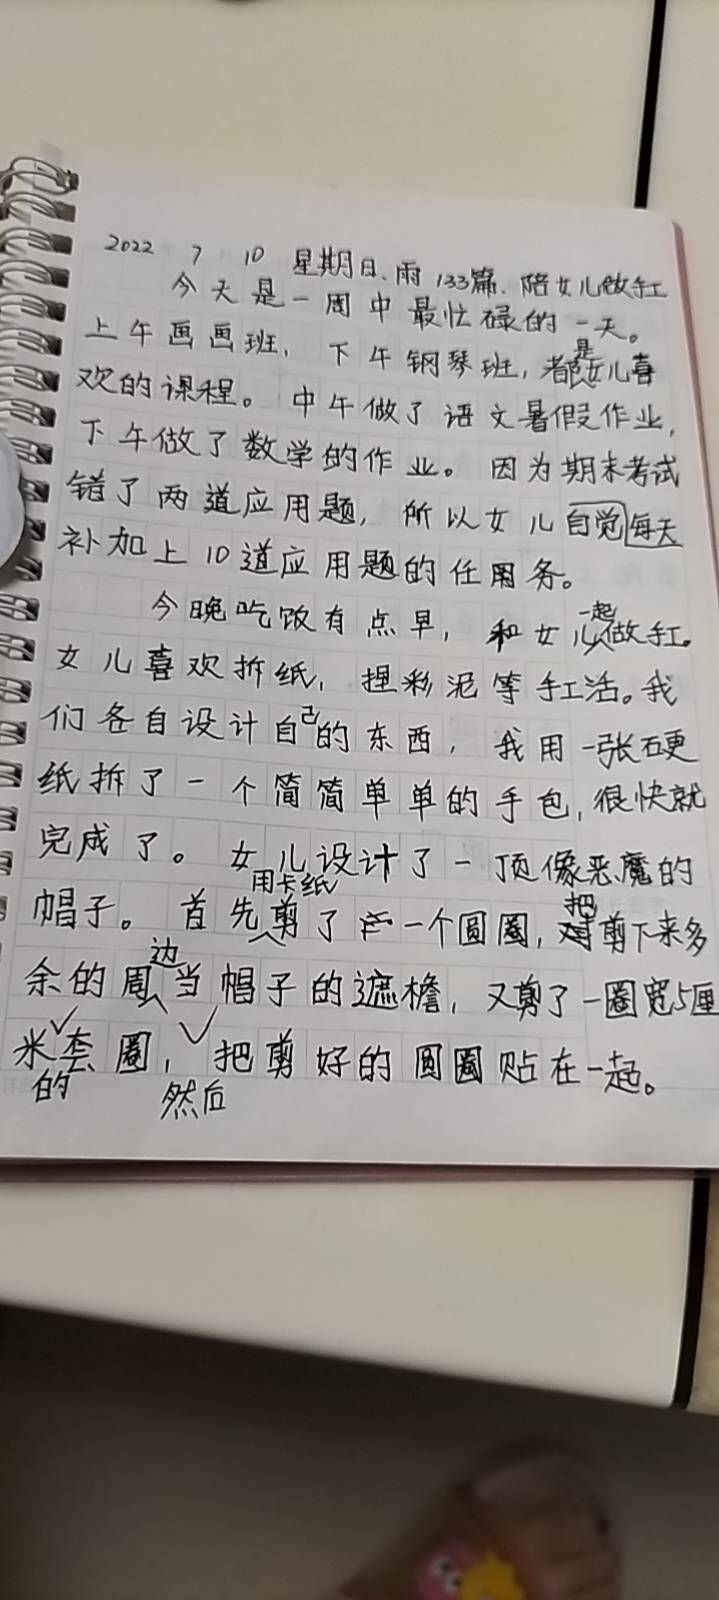 2022 7 10 星期日、雨 133篇、陪女儿做手工
今天是一周中最忙碌的一天。
上午画画班，下午钢琴班，都是女儿喜
欢的课程。中午做了语文暑假作业，
下午做了数学的作业。因为期末考试
错了两道应用题，所以女儿自觉每天
补加上10道应用题的任用务。
今晚吃饭有点早，和女儿一起做手工。
女儿喜欢拆纸，捏彩泥等手工活。我
们各自设计自己的东西，我用一张硬
纸拆了一个简简单单的手包，很快就
完成了。女儿设计了一顶像恶魔的
帽子。首先用卡纸剪了一个圆圈，把剪下来多
余的周边当帽子的遮檐，又剪了一圈宽5厘
米的套圈，然后把剪好的圆圈贴在一起。